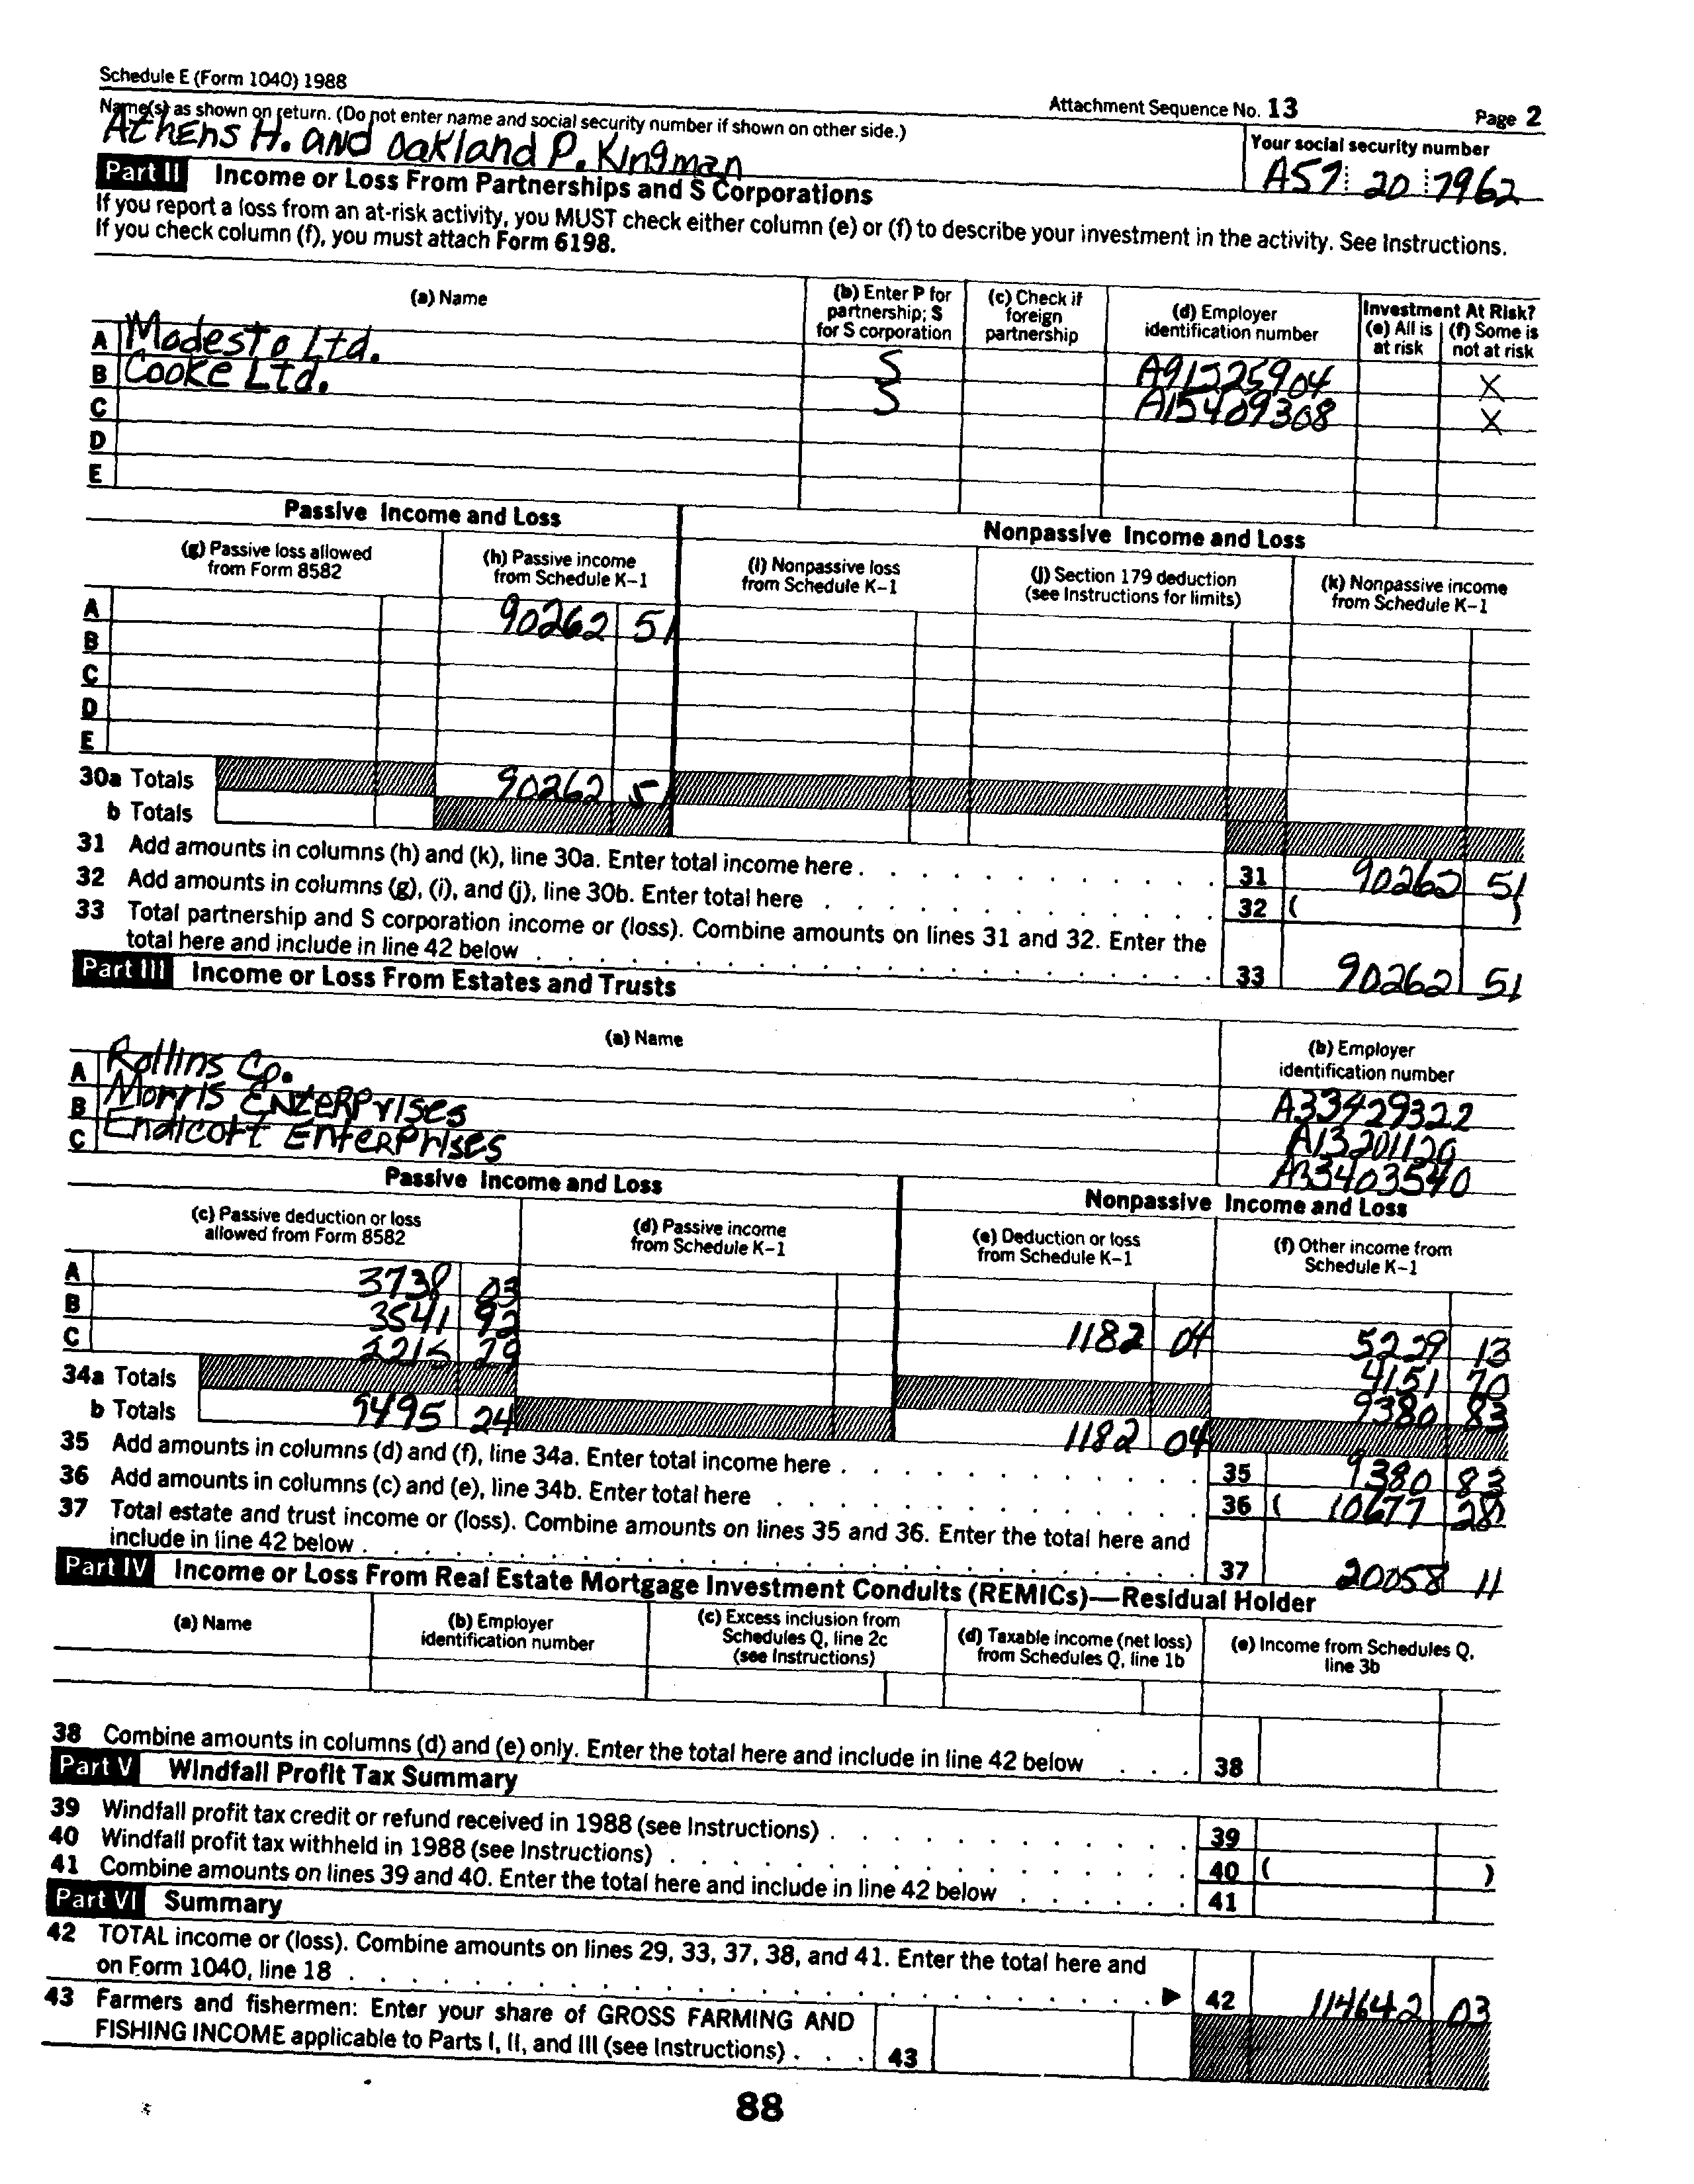 Schedule E (Form 1040) 1988
Attachment Sequence No. 13
Page 2
Name(s) as shown on return. (Do not enter name and social security number if shown on other side.)
Your social security number
Athens H. and Oakland P. Kingman
A57 20 7962
Part II Income or Loss From Partnerships and S Corporations
If you report a loss from an at-risk activity, you MUST check either column (e) or (f) to describe your investment in the activity. See Instructions.
If you check column (f), you must attach Form 6198.
(a) Name
(b) Enter P for partnership; S for S corporation
(c) Check if foreign partnership
(d) Employer identification number
Investment At Risk?
(e) All is at risk
(f) Some is not at risk
A Modesto Ltd. S A91225904 X
B Cooke Ltd. S A15409308 X
C
D
E
Passive Income and Loss
Nonpassive Income and Loss
(g) Passive loss allowed from Form 8582
(h) Passive income from Schedule K-1
(i) Nonpassive loss from Schedule K-1
(j) Section 179 deduction (see Instructions for limits)
(k) Nonpassive income from Schedule K-1
A 90262 51
B
C
D
E
30a Totals 90262 51
b Totals
31 Add amounts in columns (h) and (k), line 30a. Enter total income here 31 90262 51
32 Add amounts in columns (g), (i), and (j), line 30b. Enter total here 32 ( )
33 Total partnership and S corporation income or (loss). Combine amounts on lines 31 and 32. Enter the
total here and include in line 42 below 33 90262 51
Part III Income or Loss From Estates and Trusts
(a) Name
(b) Employer identification number
A Rollins Co. A33429322
B Morris Enterprises A13201120
C Endicott Enterprises A33403540
Passive Income and Loss
Nonpassive Income and Loss
(c) Passive deduction or loss allowed from Form 8582
(d) Passive income from Schedule K-1
(e) Deduction or loss from Schedule K-1
(f) Other income from Schedule K-1
A 3738 03
B 3541 92 1182 04 5229 13
C 2215 29 4151 70
34a Totals 9380 83
b Totals 9495 24 1182 04
35 Add amounts in columns (d) and (f), line 34a. Enter total income here 35 9380 83
36 Add amounts in columns (c) and (e), line 34b. Enter total here 36 ( 10677 28)
37 Total estate and trust income or (loss). Combine amounts on lines 35 and 36. Enter the total here and
include in line 42 below 37 20058 11
Part IV Income or Loss From Real Estate Mortgage Investment Conduits (REMICs)—Residual Holder
(a) Name
(b) Employer identification number
(c) Excess inclusion from Schedules Q, line 2c (see Instructions)
(d) Taxable income (net loss) from Schedules Q, line 1b
(e) Income from Schedules Q, line 3b
38 Combine amounts in columns (d) and (e) only. Enter the total here and include in line 42 below 38
Part V Windfall Profit Tax Summary
39 Windfall profit tax credit or refund received in 1988 (see Instructions) 39
40 Windfall profit tax withheld in 1988 (see Instructions) 40 ( )
41 Combine amounts on lines 39 and 40. Enter the total here and include in line 42 below 41
Part VI Summary
42 TOTAL income or (loss). Combine amounts on lines 29, 33, 37, 38, and 41. Enter the total here and
on Form 1040, line 18 42 114642 03
43 Farmers and fishermen: Enter your share of GROSS FARMING AND
FISHING INCOME applicable to Parts I, II, and III (see Instructions) 43
88